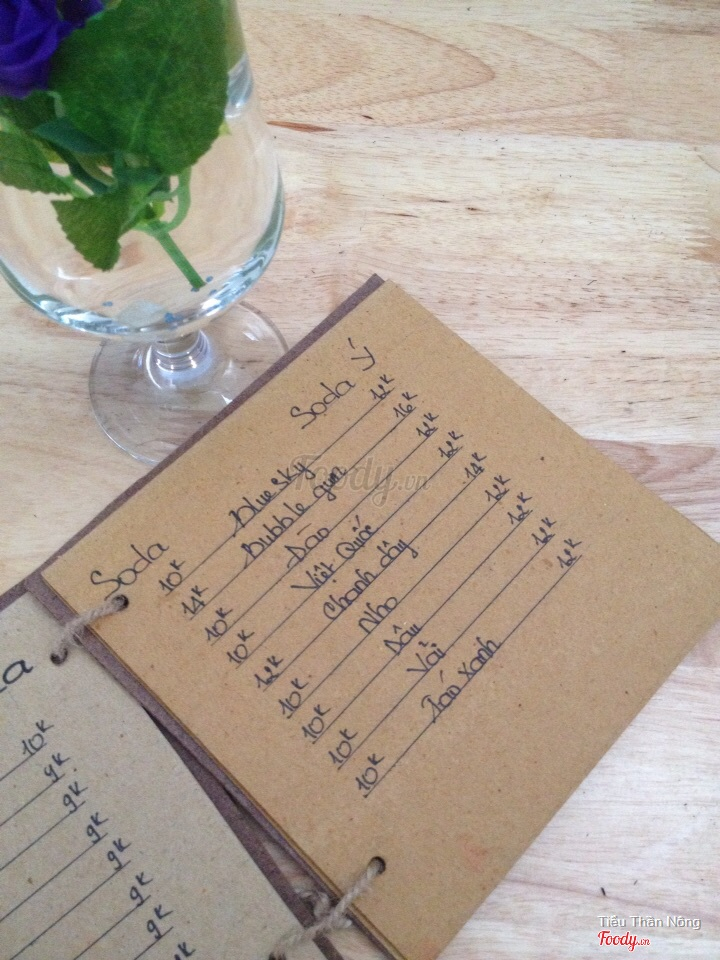 Soda Soda Ý
10K Blue sky 12K
14K Bubble gum 16K
10K Đào 12K
10K Việt Quốc 12K
12K Chanh dây 14K
10K Nho 12K
10K Dâu 12K
10K Vải 12K
10K Táo xanh 12K
a
10K
9K
9K
9K
9K
9K
9K
9K
Foody.vn
Tiểu Thần Nông
Foody.vn